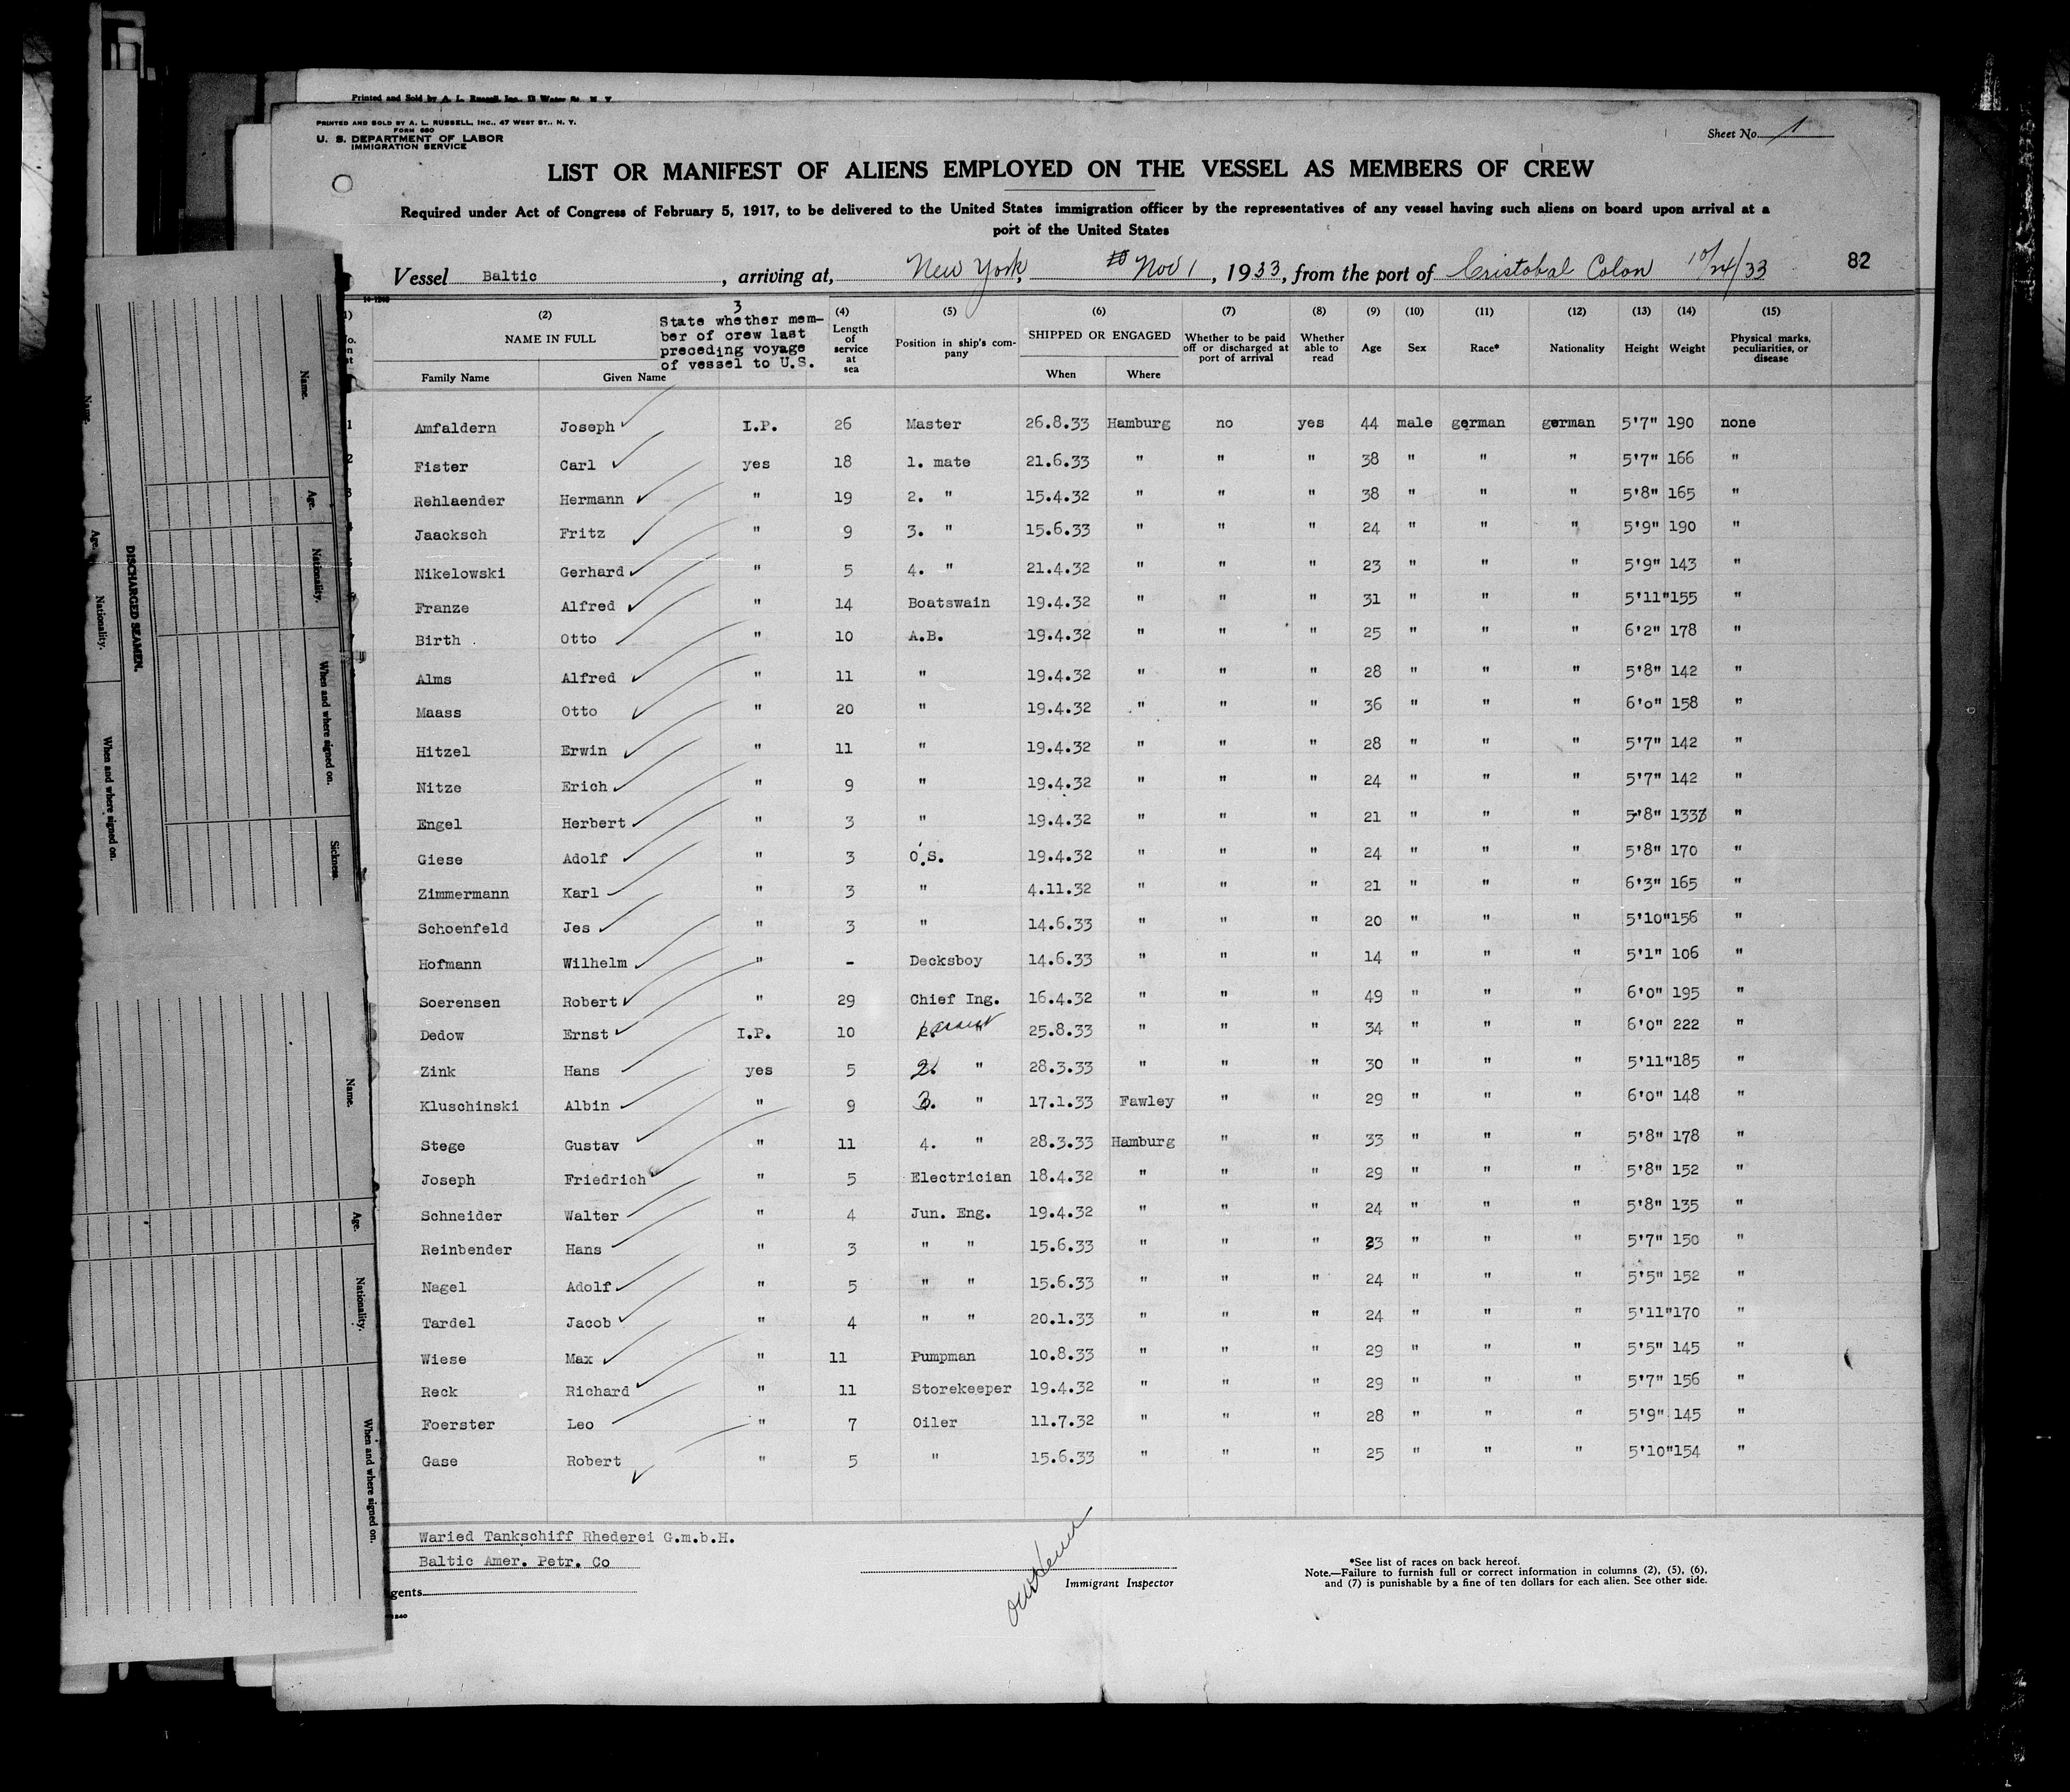 Printed and Sold by A. L. Russell, Inc.
PRINTED AND SOLD BY A. L. RUSSELL, INC., 47 WEST ST., N. Y.
FORM 680
U. S. DEPARTMENT OF LABOR
IMMIGRATION SERVICE
Sheet No. 1
LIST OR MANIFEST OF ALIENS EMPLOYED ON THE VESSEL AS MEMBERS OF CREW
Required under Act of Congress of February 5, 1917, to be delivered to the United States immigration officer by the representatives of any vessel having such aliens on board upon arrival at a
port of the United States
Vessel Baltic, arriving at, New York, Nov 1, 1933, from the port of Cristobal Colon 10/24/33 82
(2) NAME IN FULL Family Name Given Name
3 State whether mem-
ber of crew last
preceding voyage
of vessel to U.S.
(4) Length of service at sea
(5) Position in ship's com-
pany
(6) SHIPPED OR ENGAGED When Where
(7) Whether to be paid off or discharged at port of arrival
(8) Whether able to read
(9) Age
(10) Sex
(11) Race*
(12) Nationality
(13) Height
(14) Weight
(15) Physical marks, peculiarities, or disease
1 Amfaldern Joseph I.P. 26 Master 26.8.33 Hamburg no yes 44 male german german 5'7" 190 none
2 Fister Carl yes 18 1. mate 21.6.33 " " " 38 " " " 5'7" 166 "
3 Rehlaender Hermann " 19 2. " 15.4.32 " " " 38 " " " 5'8" 165 "
Jaacksch Fritz " 9 3. " 15.6.33 " " " 24 " " " 5'9" 190 "
Nikelowski Gerhard " 5 4. " 21.4.32 " " " 23 " " " 5'9" 143 "
Franze Alfred " 14 Boatswain 19.4.32 " " " 31 " " " 5'11" 155 "
Birth Otto " 10 A.B. 19.4.32 " " " 25 " " " 6'2" 178 "
Alms Alfred " 11 " 19.4.32 " " " 28 " " " 5'8" 142 "
Maass Otto " 20 " 19.4.32 " " " 36 " " " 6'0" 158 "
Hitzel Erwin " 11 " 19.4.32 " " " 28 " " " 5'7" 142 "
Nitze Erich " 9 " 19.4.32 " " " 24 " " " 5'7" 142 "
Engel Herbert " 3 " 19.4.32 " " " 21 " " " 5'8" 133 "
Giese Adolf " 3 O.S. 19.4.32 " " " 24 " " " 5'8" 170 "
Zimmermann Karl " 3 " 4.11.32 " " " 21 " " " 6'3" 165 "
Schoenfeld Jes " 3 " 14.6.33 " " " 20 " " " 5'10" 156 "
Hofmann Wilhelm " - Decksboy 14.6.33 " " " 14 " " " 5'1" 106 "
Soerensen Robert " 29 Chief Ing. 16.4.32 " " " 49 " " " 6'0" 195 "
Dedow Ernst I.P. 10 25.8.33 " " " 34 " " " 6'0" 222 "
Zink Hans yes 5 2. " 28.3.33 " " " 30 " " " 5'11" 185 "
Kluschinski Albin " 9 3. " 17.1.33 Fawley " " 29 " " " 6'0" 148 "
Stege Gustav " 11 4. " 28.3.33 Hamburg " " 33 " " " 5'8" 178 "
Joseph Friedrich " 5 Electrician 18.4.32 " " " 29 " " " 5'8" 152 "
Schneider Walter " 4 Jun. Eng. 19.4.32 " " " 24 " " " 5'8" 135 "
Reinbender Hans " 3 " " 15.6.33 " " " 23 " " " 5'7" 150 "
Nagel Adolf " 5 " " 15.6.33 " " " 24 " " " 5'5" 152 "
Tardel Jacob " 4 " " 20.1.33 " " " 24 " " " 5'11" 170 "
Wiese Max " 11 Pumpman 10.8.33 " " " 29 " " " 5'5" 145 "
Reck Richard " 11 Storekeeper 19.4.32 " " " 29 " " " 5'7" 156 "
Foerster Leo " 7 Oiler 11.7.32 " " " 28 " " " 5'9" 145 "
Gase Robert " 5 " 15.6.33 " " " 25 " " " 5'10" 154 "
Waried Tankschiff Rhederei G.m.b.H.
Baltic Amer. Petr. Co
gents
Immigrant Inspector
*See list of races on back hereof.
Note.—Failure to furnish full or correct information in columns (2), (5), (6),
and (7) is punishable by a fine of ten dollars for each alien. See other side.
Name. Age. Nationality. When and where signed on. Sickness.
DISCHARGED SEAMEN.
Name. Age. Nationality. When and where signed on.
Name. Age. Nationality. When and where signed on.